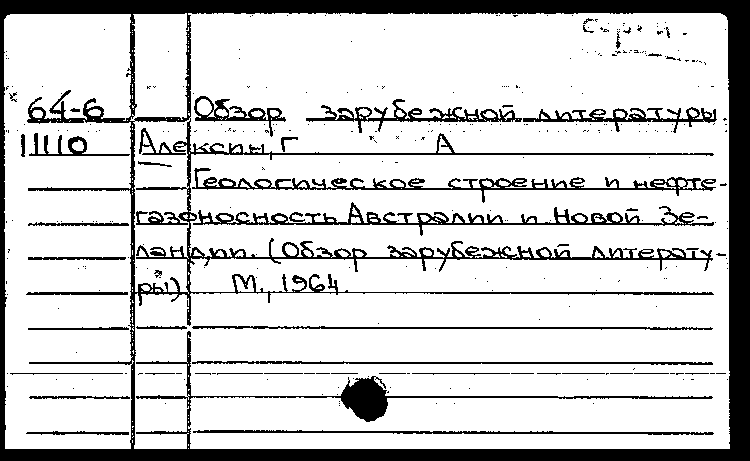 64-6 Обзор зарубежной литературы
11110 Алексин, Г А
Геологическое строение и нефте-
газоносность Австралии и Новой Зе-
ландии. (Обзор зарубежной литерату-
ры) М., 1964.